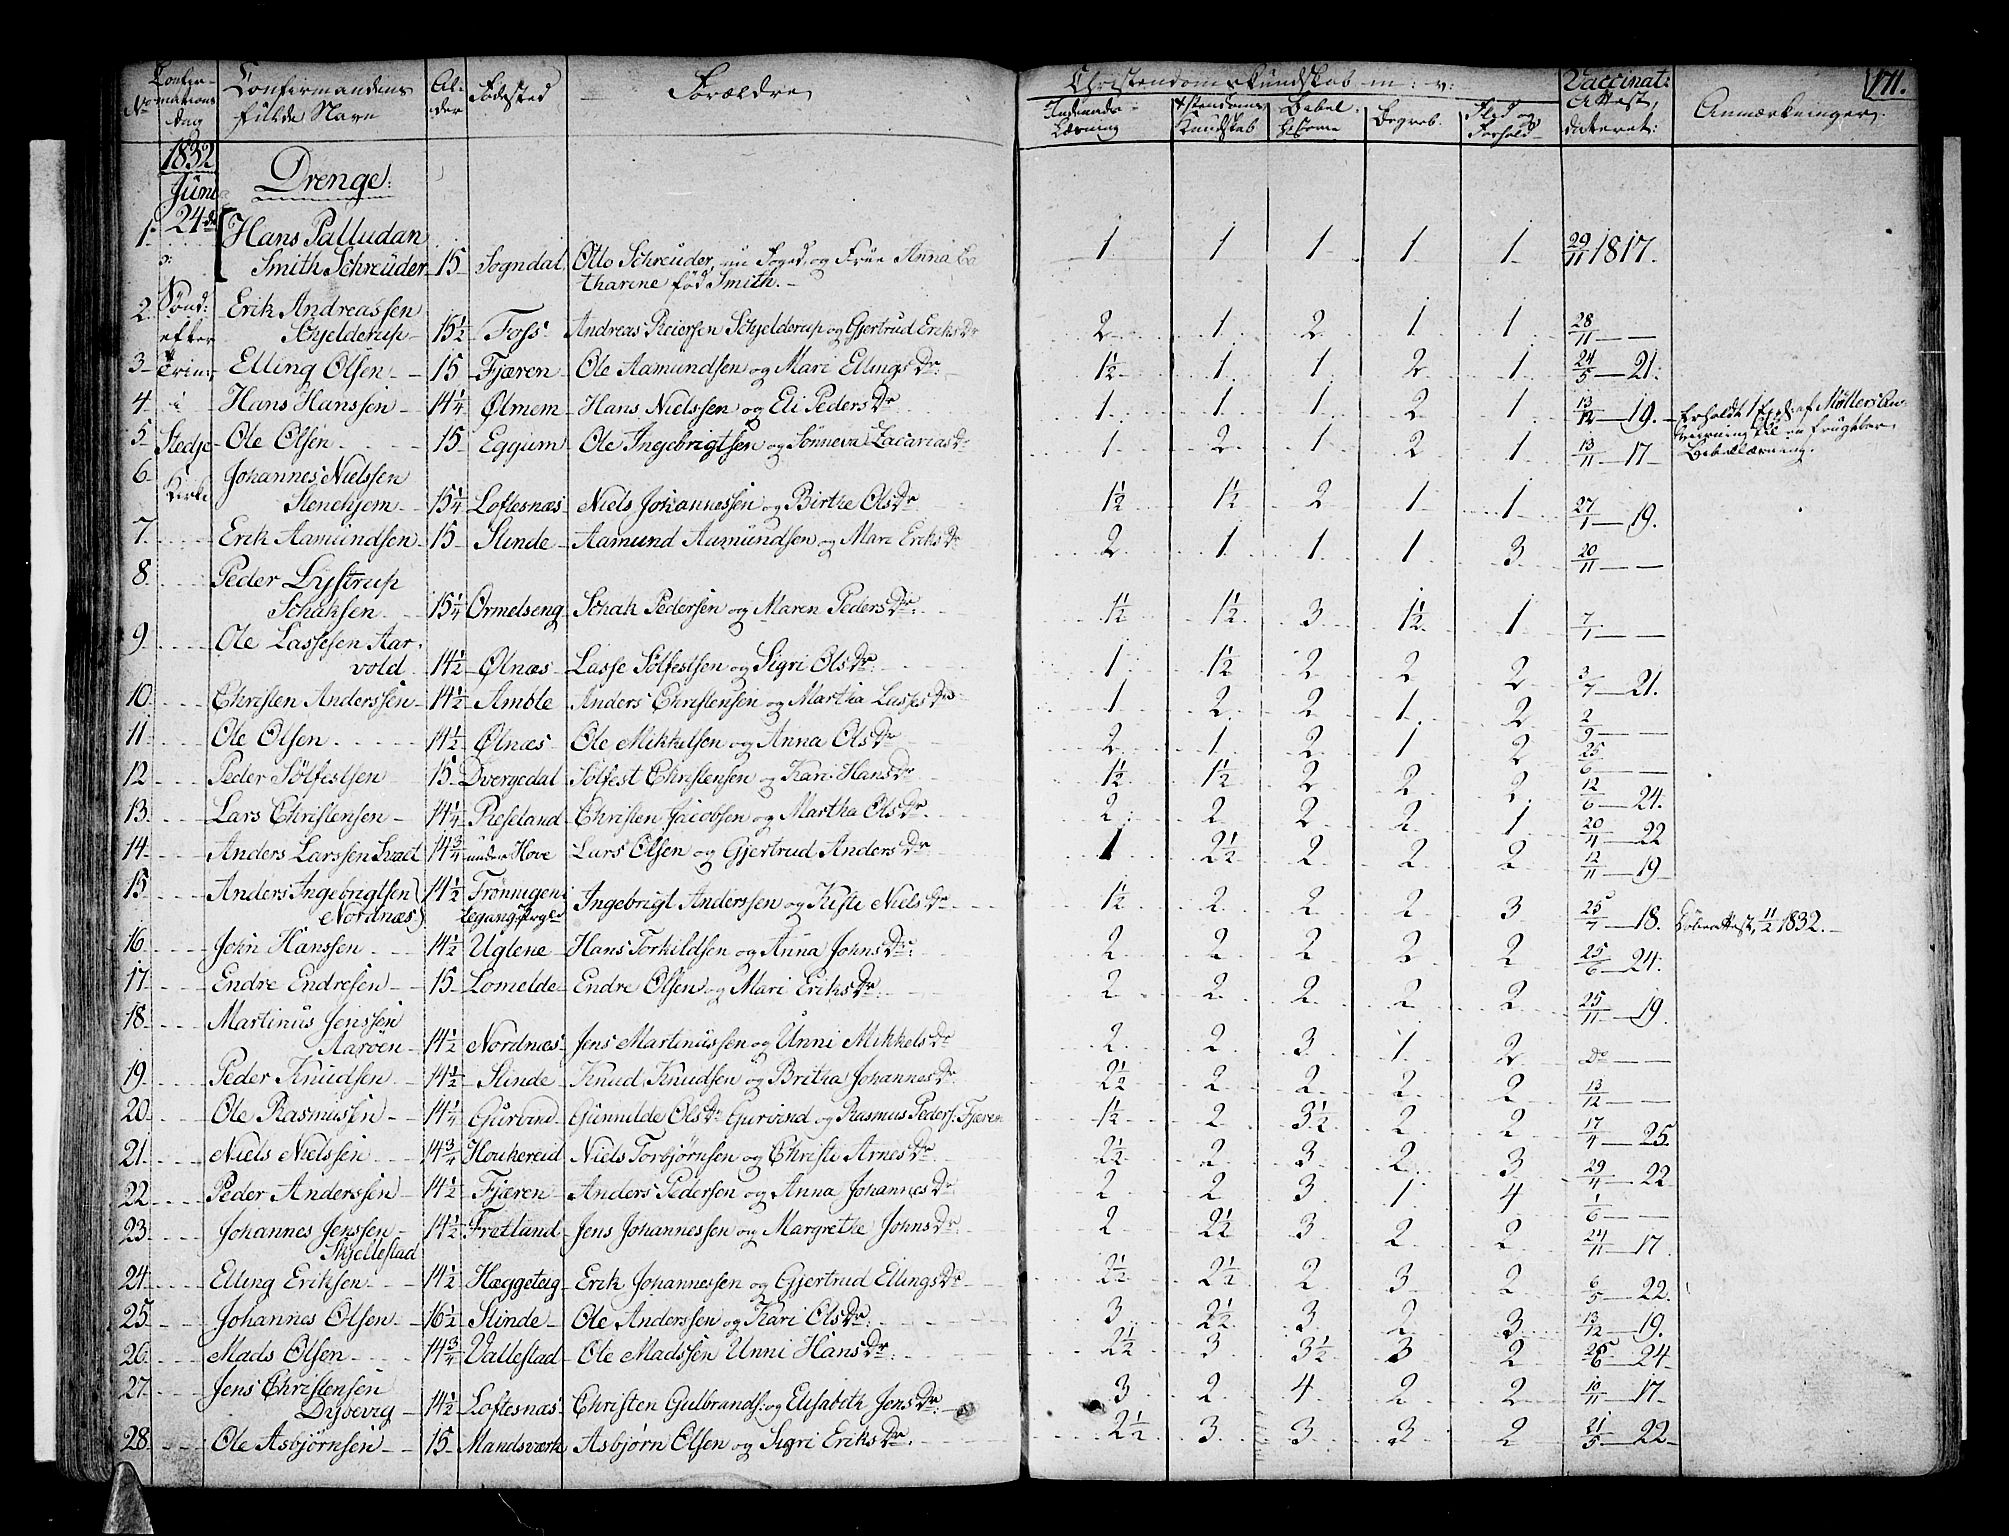 171.
No | Confirmations dag | Confirmandens fulde Navn | Alder | Fødested | Forældre | Christendomskundskab m: v: | Vaccinat: Attest, dateret: | Anmærkninger
Indenads Læsning | Xstendoms Kundskab | Bibel | Begreb. | Flid og Forhold
1832
Juni 24de
Drenge:
1. Hans Palludan
Smith Schreuder 15 Sogndal, Otto Schreuder, nu Foged, og Frue Anna Ca 1 1 1 1 1 29/11 1817.
tharine fød Smith.
Sønd: efter Trin: i Stedje Kirke
2. Erik Andreassen
Schjelderup 15½ Foss Andreas Reiersen Schjelderup og Gjertrud Eriks Dr 2 1 2 1 1 28/11 — —
3. Elling Olsen 15 Fjæren Ole Aamundsen og Mari Ellings Dr: 1½ 1 1 2 1 24/5 — 21.
4. Hans Hanssen 14¼ Ølmem Hans Nielssen og Eli Peders Dr 1 1 1 2 1 13/12 — 19. Erholdt 1 Expl af Møllers An-
5. Ole Olsen 15 Eggum Ole Ingebrigtsen og Sønneva Zacarias Dr 1 2 1 2 1 13/11 — 17 viisning til en frugtbar
Bibellæsning.
6. Johannes Nielssen
Stenehjem 15¼ Loftesnæs Niels Johannessen og Birthe Ols Dr 1½ 1½ 2 1 1 27/1 — 19.
7. Erik Aamundsen 15 Slinde Aamund Aamundsen og Mari Eriks Dr 2 1 1 1 3 20/11 — —
8. Peder Lystrup
Schaksen 15¼ Ormelseng Schak Pedersen og Maren Peders Dr. 1½ 1½ 3 1½ 1 7/1 — —
9. Ole Lassesen Aar-
vold 14½ Ølnæs Lasse Solfestsen og Sigri Ols Dr. 1 1½ 2 2 2 3/7 — 21.
10. Christen Anderssen 14½ Amble Anders Christensen og Martha Lasses Dr 1 2 2 1 2 2/9 — —
11. Ole Olsen 14½ Ølnæs Ole Mikkelsen og Anna Ols Dr 2 1 2 1 2 25/6 — —
12. Peder Solfestsen 15 Dvergedal Solfest Christensen og Kari Hans Dr 1½ 1½ 2 2 2 12/6 — 24.
13. Lars Christensen 14¼ Reseland Christen Jacobsen og Martha Ols Dr. 2 2 2 2 1 20/4 — 22
14. Anders Larssen Svaet 14¾ under Hove Lars Olsen og Gjertrud Anders Dr 1 2½ 2 2 2 12/11 — 19
15. Anders Ingebrigtsen 14½ Frønnigen Ingebrigt Anderssen og Kisti Niels Dr 1½ 2 2 2 3 25/7 — 18. Døbeattest, 11/2 1832.
Nordnæs
16. John Hanssen 14½ Uglene Hans Torkildsen og Anna Johns Dr: 2 2 2 2 2 25/6 — 24.
17. Endre Endresen 15 Lomelde Endre Olsen og Mari Eriks Dr: 2 2 2 2 2 25/11 — 19.
18. Martinus Jenssen
Aarøen 14½ Nordnæs Jens Martinussen og Unni Mikkels Dr 2 2 3 1 2 Do — —
19. Peder Knudsen 14½ Slinde Knud Knudsen og Britha Johannes Dr 2½ 2 2 2 2 13/12 — —
20. Ole Rasmussen 14¼ Gurvind Gunnilde Ols Dr Gurvind og Rasmus Peders: Fjæren 1½ 2 3½ 2 2 17/4 — 25.
21. Niels Nielssen 14¾ Houkereid Niels Torbjørnsen og Christi Arnes Dr 2½ 2 3 2 3 29/4 — 22
22. Peder Anderssen 14½ Fjæren Anders Pedersen og Anna Johannes Dr 2 2 3 1 4 1/6 — —
23. Johannes Jenssen 14½ Fretland Jens Johannessen og Margrethe Johns Dr 2 2½ 3 2 2 24/11 — 17.
Skjellestad
24. Elling Eriksen 14½ Hæggeteig Erik Johannessen og Gjertrud Ellings Dr 2½ 2½ 2 3 2 6/5 — 22.
25. Johannes Olsen 16½ Slinde Ole Anderssen og Kari Ols Dr. 3 2½ 3 2 3 13/12 — 19.
26. Mads Olsen 14¾ Vallestad Ole Madssen Unni Hans Dr: 2½ 3 3½ 3 2 25/6 — 24
27. Jens Christensen
Dybevig 14½ Loftesnæs Christen Gulbrands: og Elisabeth Jens Dr: 3 2 4 2 2 10/11 — 17.
28. Ole Asbjørnsen 15 Mandsværk Asbjørn Olsen og Sigri Eriks Dr. 2½ 3 3 3 2 21/5 — 22